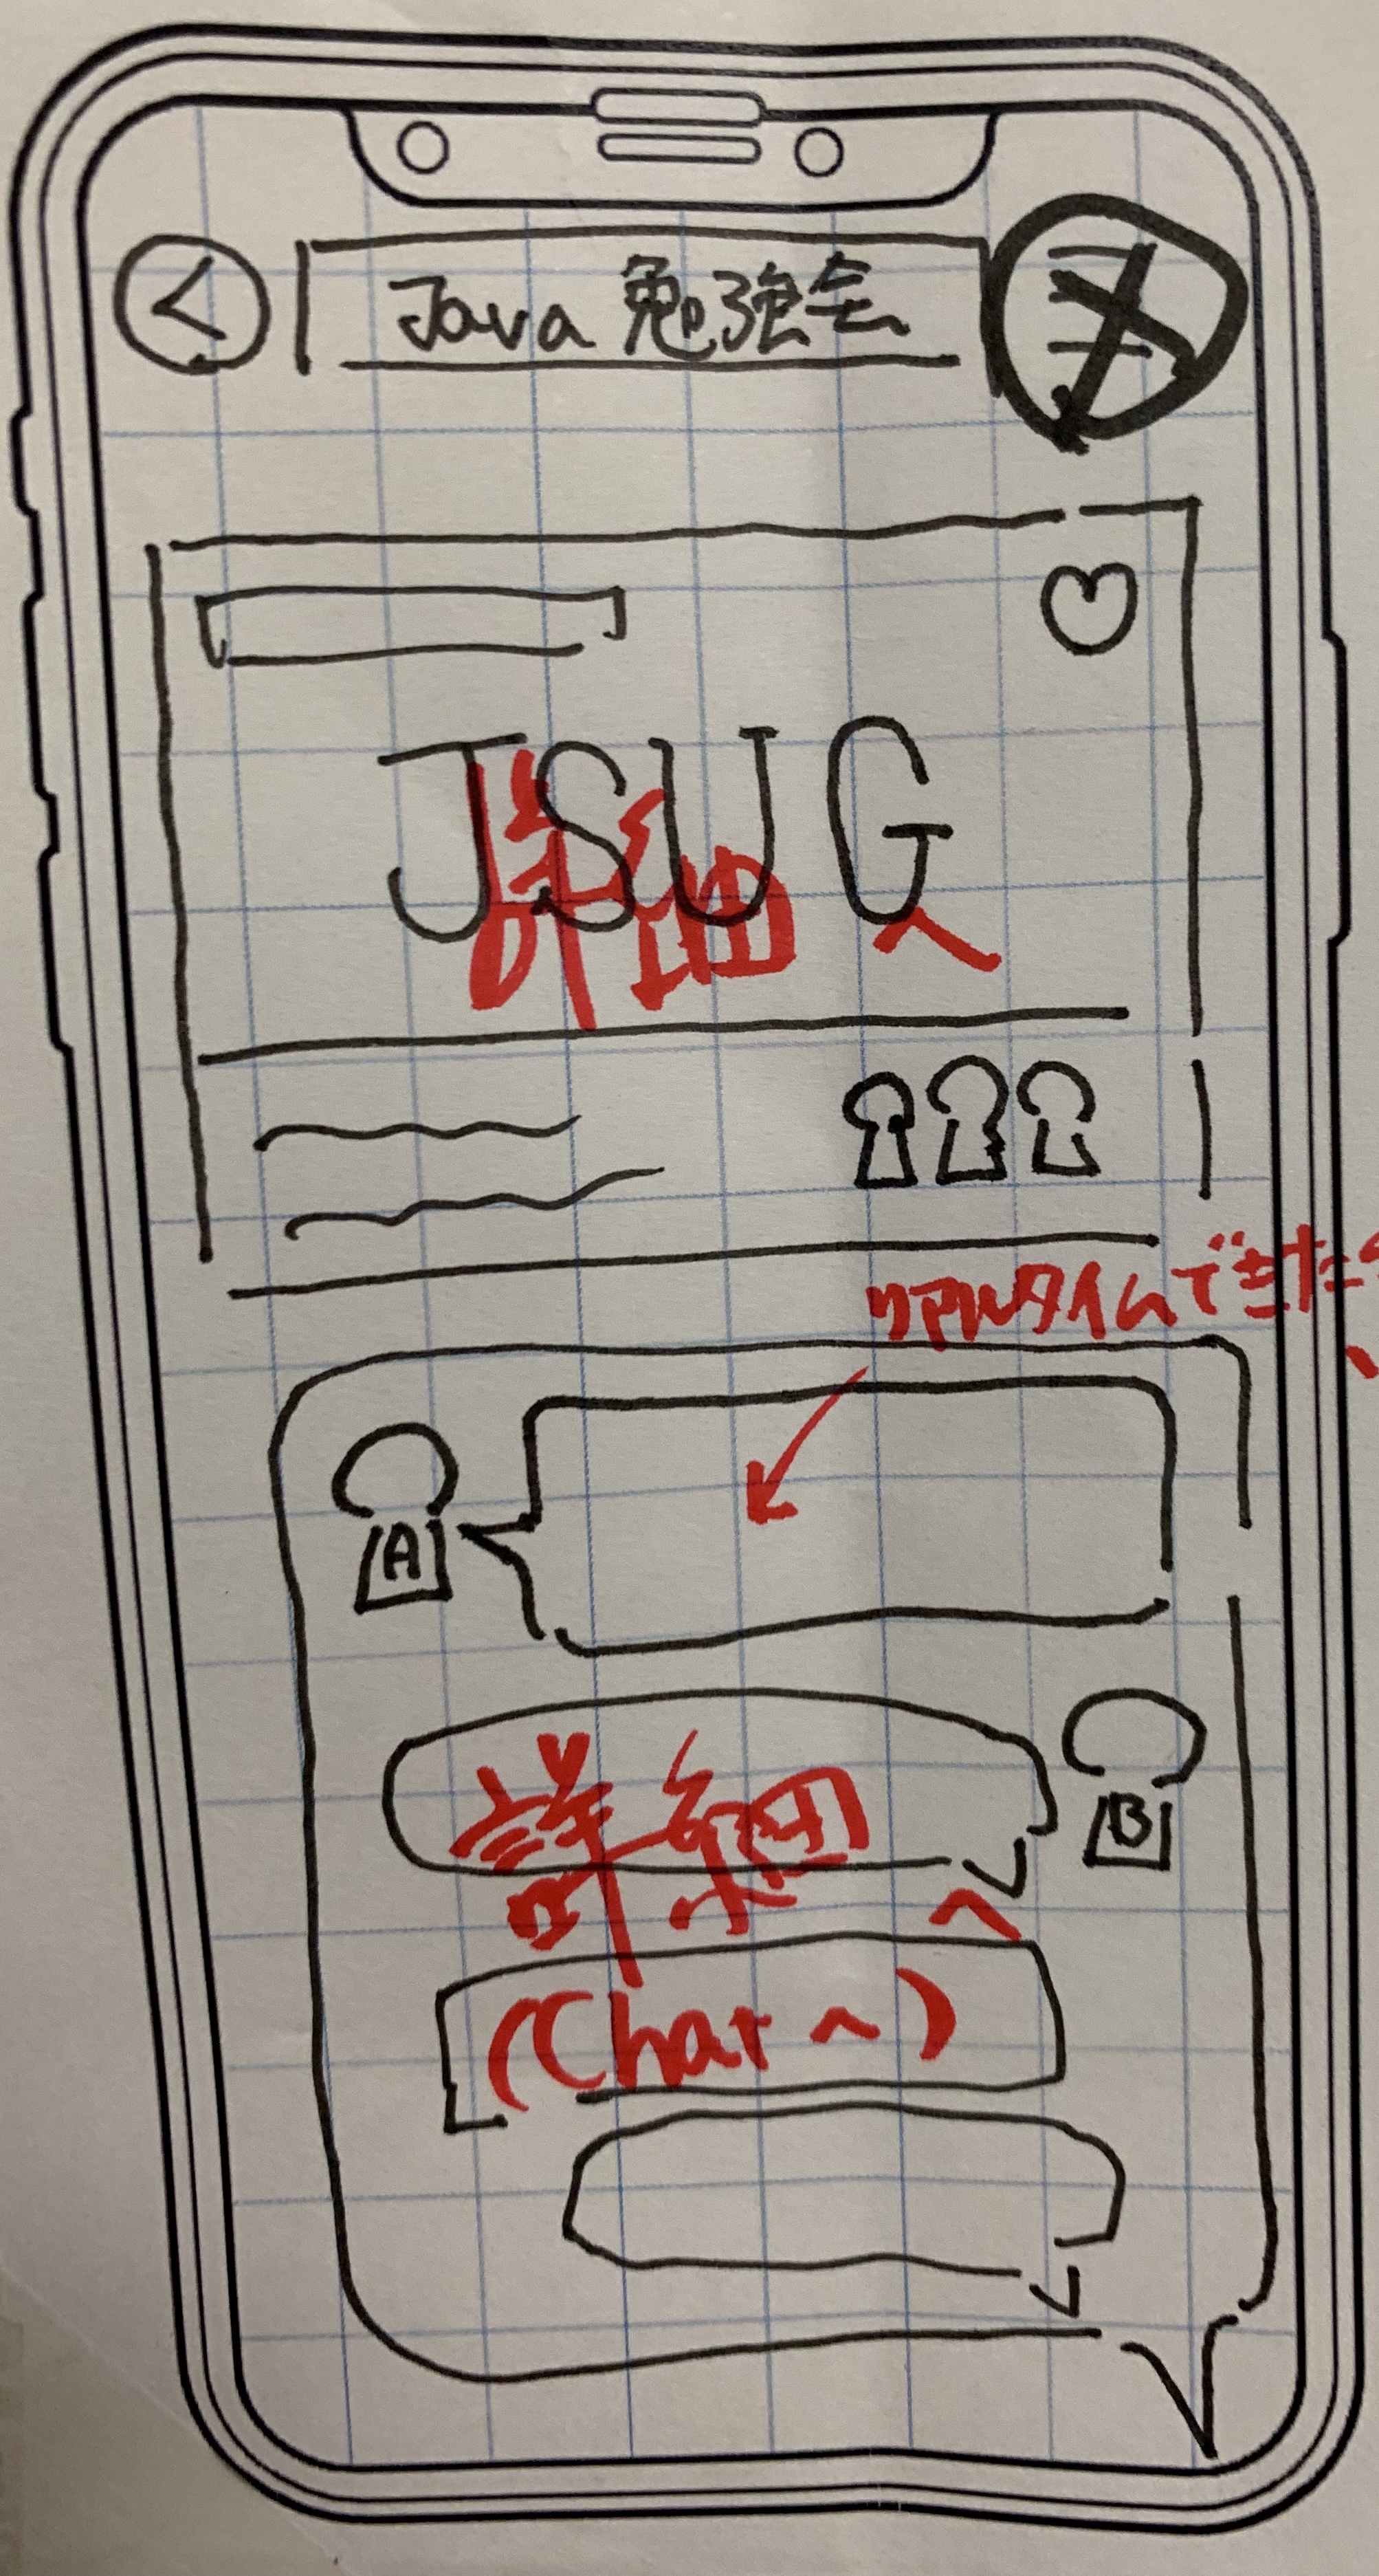 Java 勉強会
JSUG
詳細へ
リアルタイムできたら
A
詳細へ
B
(Chat へ)